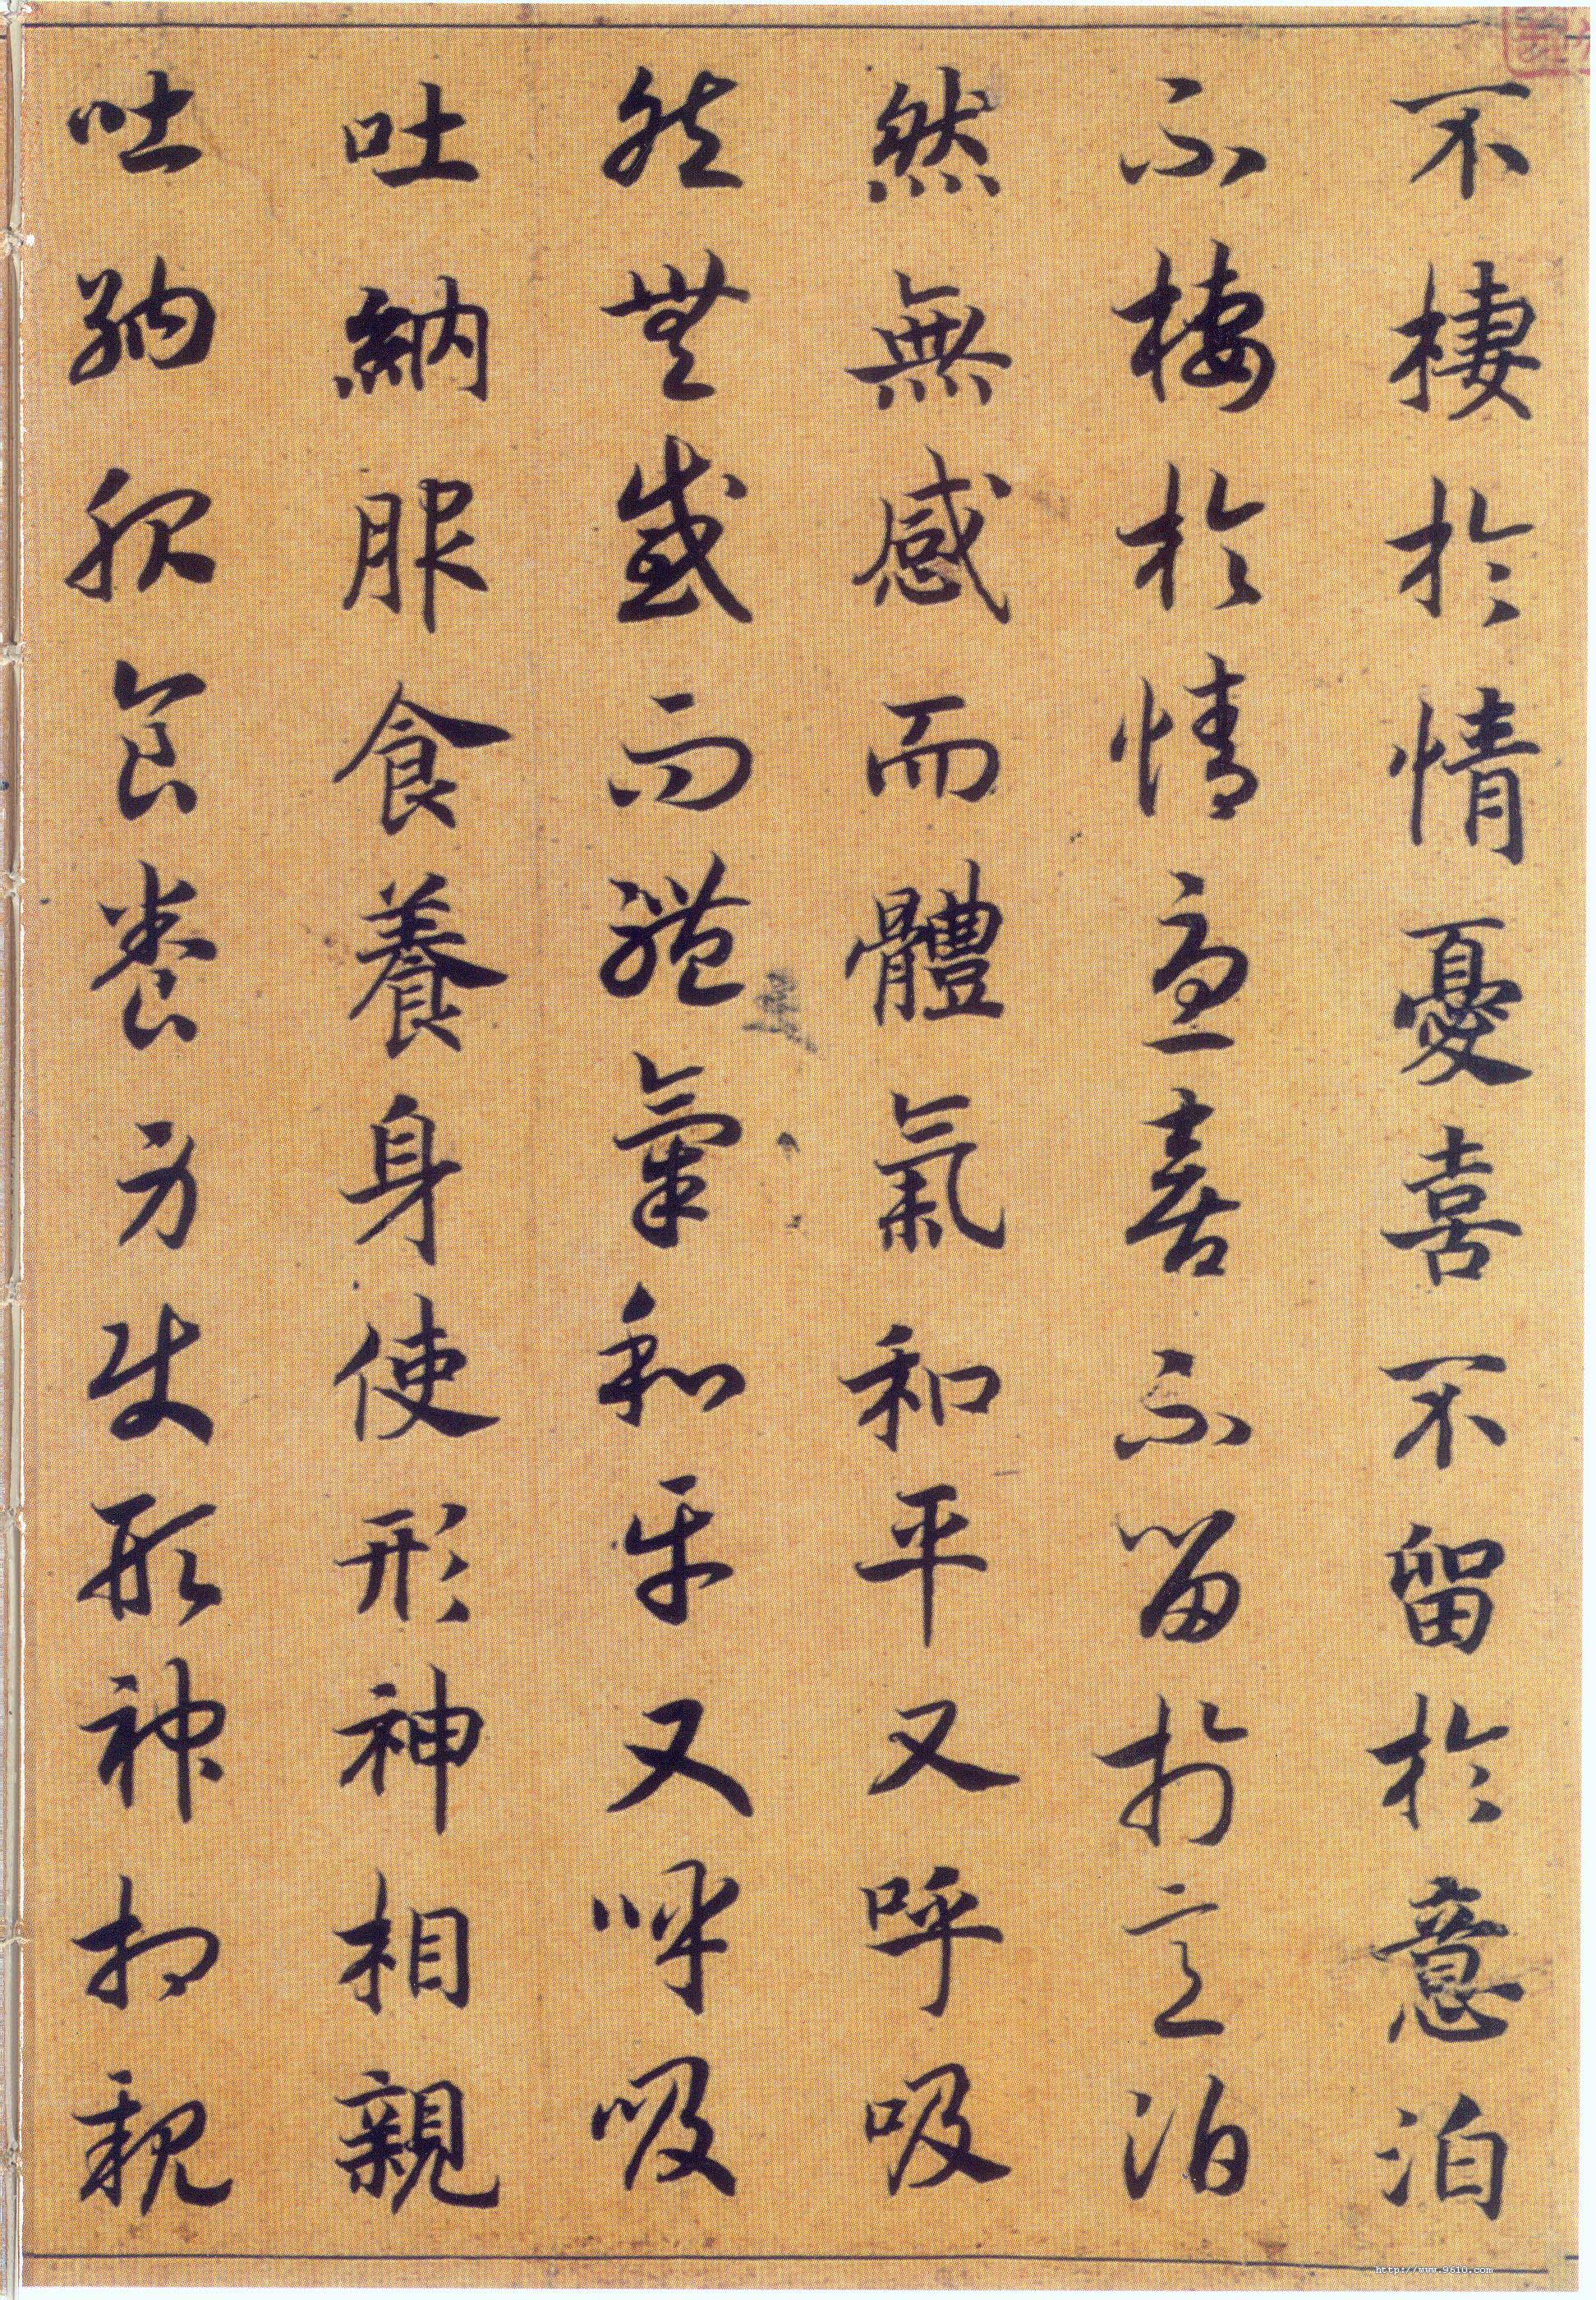 不棲於情憂喜不留於意泊
不棲於情憂喜不留於意泊
然無感而體氣和平又呼吸
然無感而體氣和平又呼吸
吐納服食養身使形神相親
吐納服食養方使形神相親
http://www.9610.com